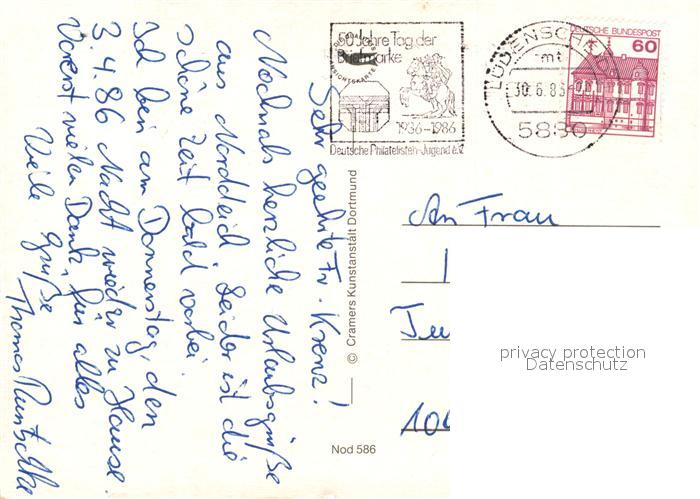 Sehr geehrte Fr. Krenz!
Nochmals herzliche Urlaubsgrüße
aus Norddeich. Leider ist die
schöne Zeit bald vorbei.
Ich bin am Donnerstag, den
3.4.86 Nacht wieder zu Hause.
Vorerst vielen Dank für alles
Viele Grüße
Thomas
50 Jahre Tag der
Briefmarke
1936-1986
Deutsche Philatelisten-Jugend e.V.
LÜDENSCHEID
mt
5880
DEUTSCHE BUNDESPOST
60
© Cramers Kunstanstalt Dortmund
Nod 586
An Frau
privacy protection
Datenschutz